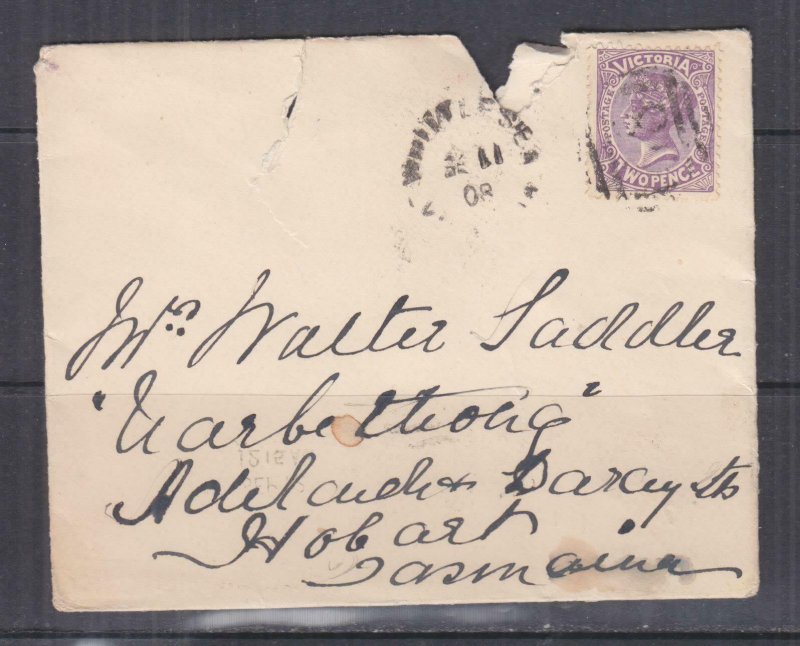 VICTORIA
POSTAGE POSTAGE
TWO PENCE
WHITTLESEA
11
08
Mrs Walter Saddler
"Narbethong"
Adelaide & Darcy Sts
Hobart
Tasmania
1215
SEP